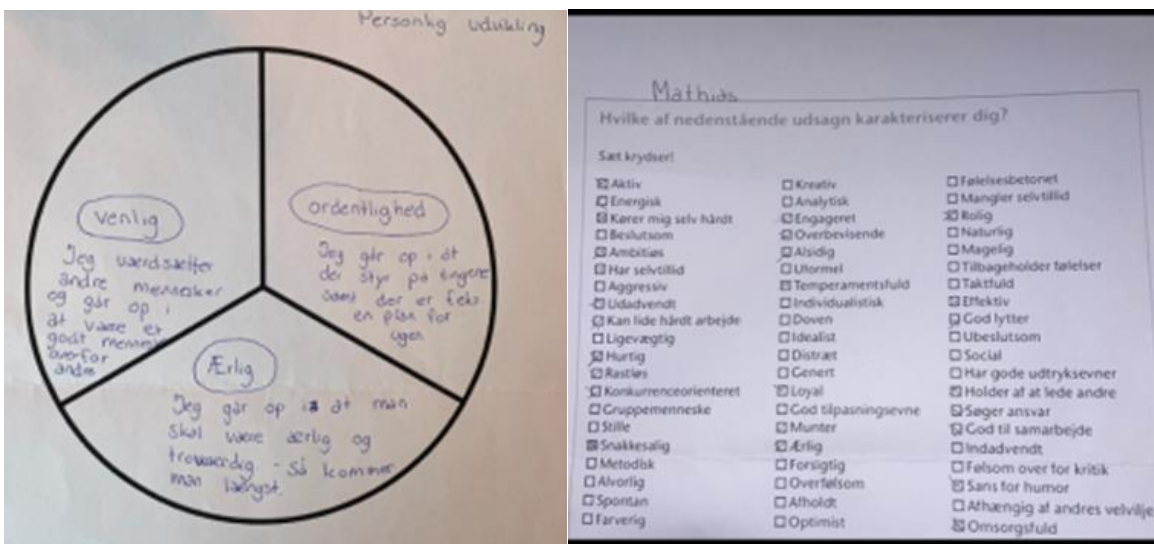 Personlig udvikling
Venlig
Jeg værdsætter
andre mennesker
og går op i
at være et
godt menneske
overfor
andre
ordentlighed
Jeg går op i at
der styr på tingene
samt der er f.eks.
en plan for
ugen
Ærlig
Jeg går op i at man
skal være ærlig og
troværdig - Så kommer
man længst.
Mathias
Hvilke af nedenstående udsagn karakteriserer dig?
Sæt krydser!
Aktiv
Energisk
Kører mig selv hårdt
Beslutsom
Ambitiøs
Har selvtillid
Aggressiv
Udadvendt
Kan lide hårdt arbejde
Ligevægtig
Hurtig
Rastløs
Konkurrenceorienteret
Gruppemenneske
Stille
Snakkesalig
Metodisk
Alvorlig
Spontan
Farverig
Kreativ
Analytisk
Engageret
Overbevisende
Alsidig
Uformel
Temperamentsfuld
Individualistisk
Doven
Idealist
Distræt
Genert
Loyal
God tilpasningsevne
Munter
Ærlig
Forsigtig
Overfølsom
Afholdt
Optimist
Følelsesbetonet
Mangler selvtillid
Rolig
Naturlig
Magelig
Tilbageholder følelser
Taktfuld
Effektiv
God lytter
Ubeslutsom
Social
Har gode udtryksevner
Holder af at lede andre
Søger ansvar
God til samarbejde
Indadvendt
Følsom over for kritik
Sans for humor
Afhængig af andres velvilje
Omsorgsfuld